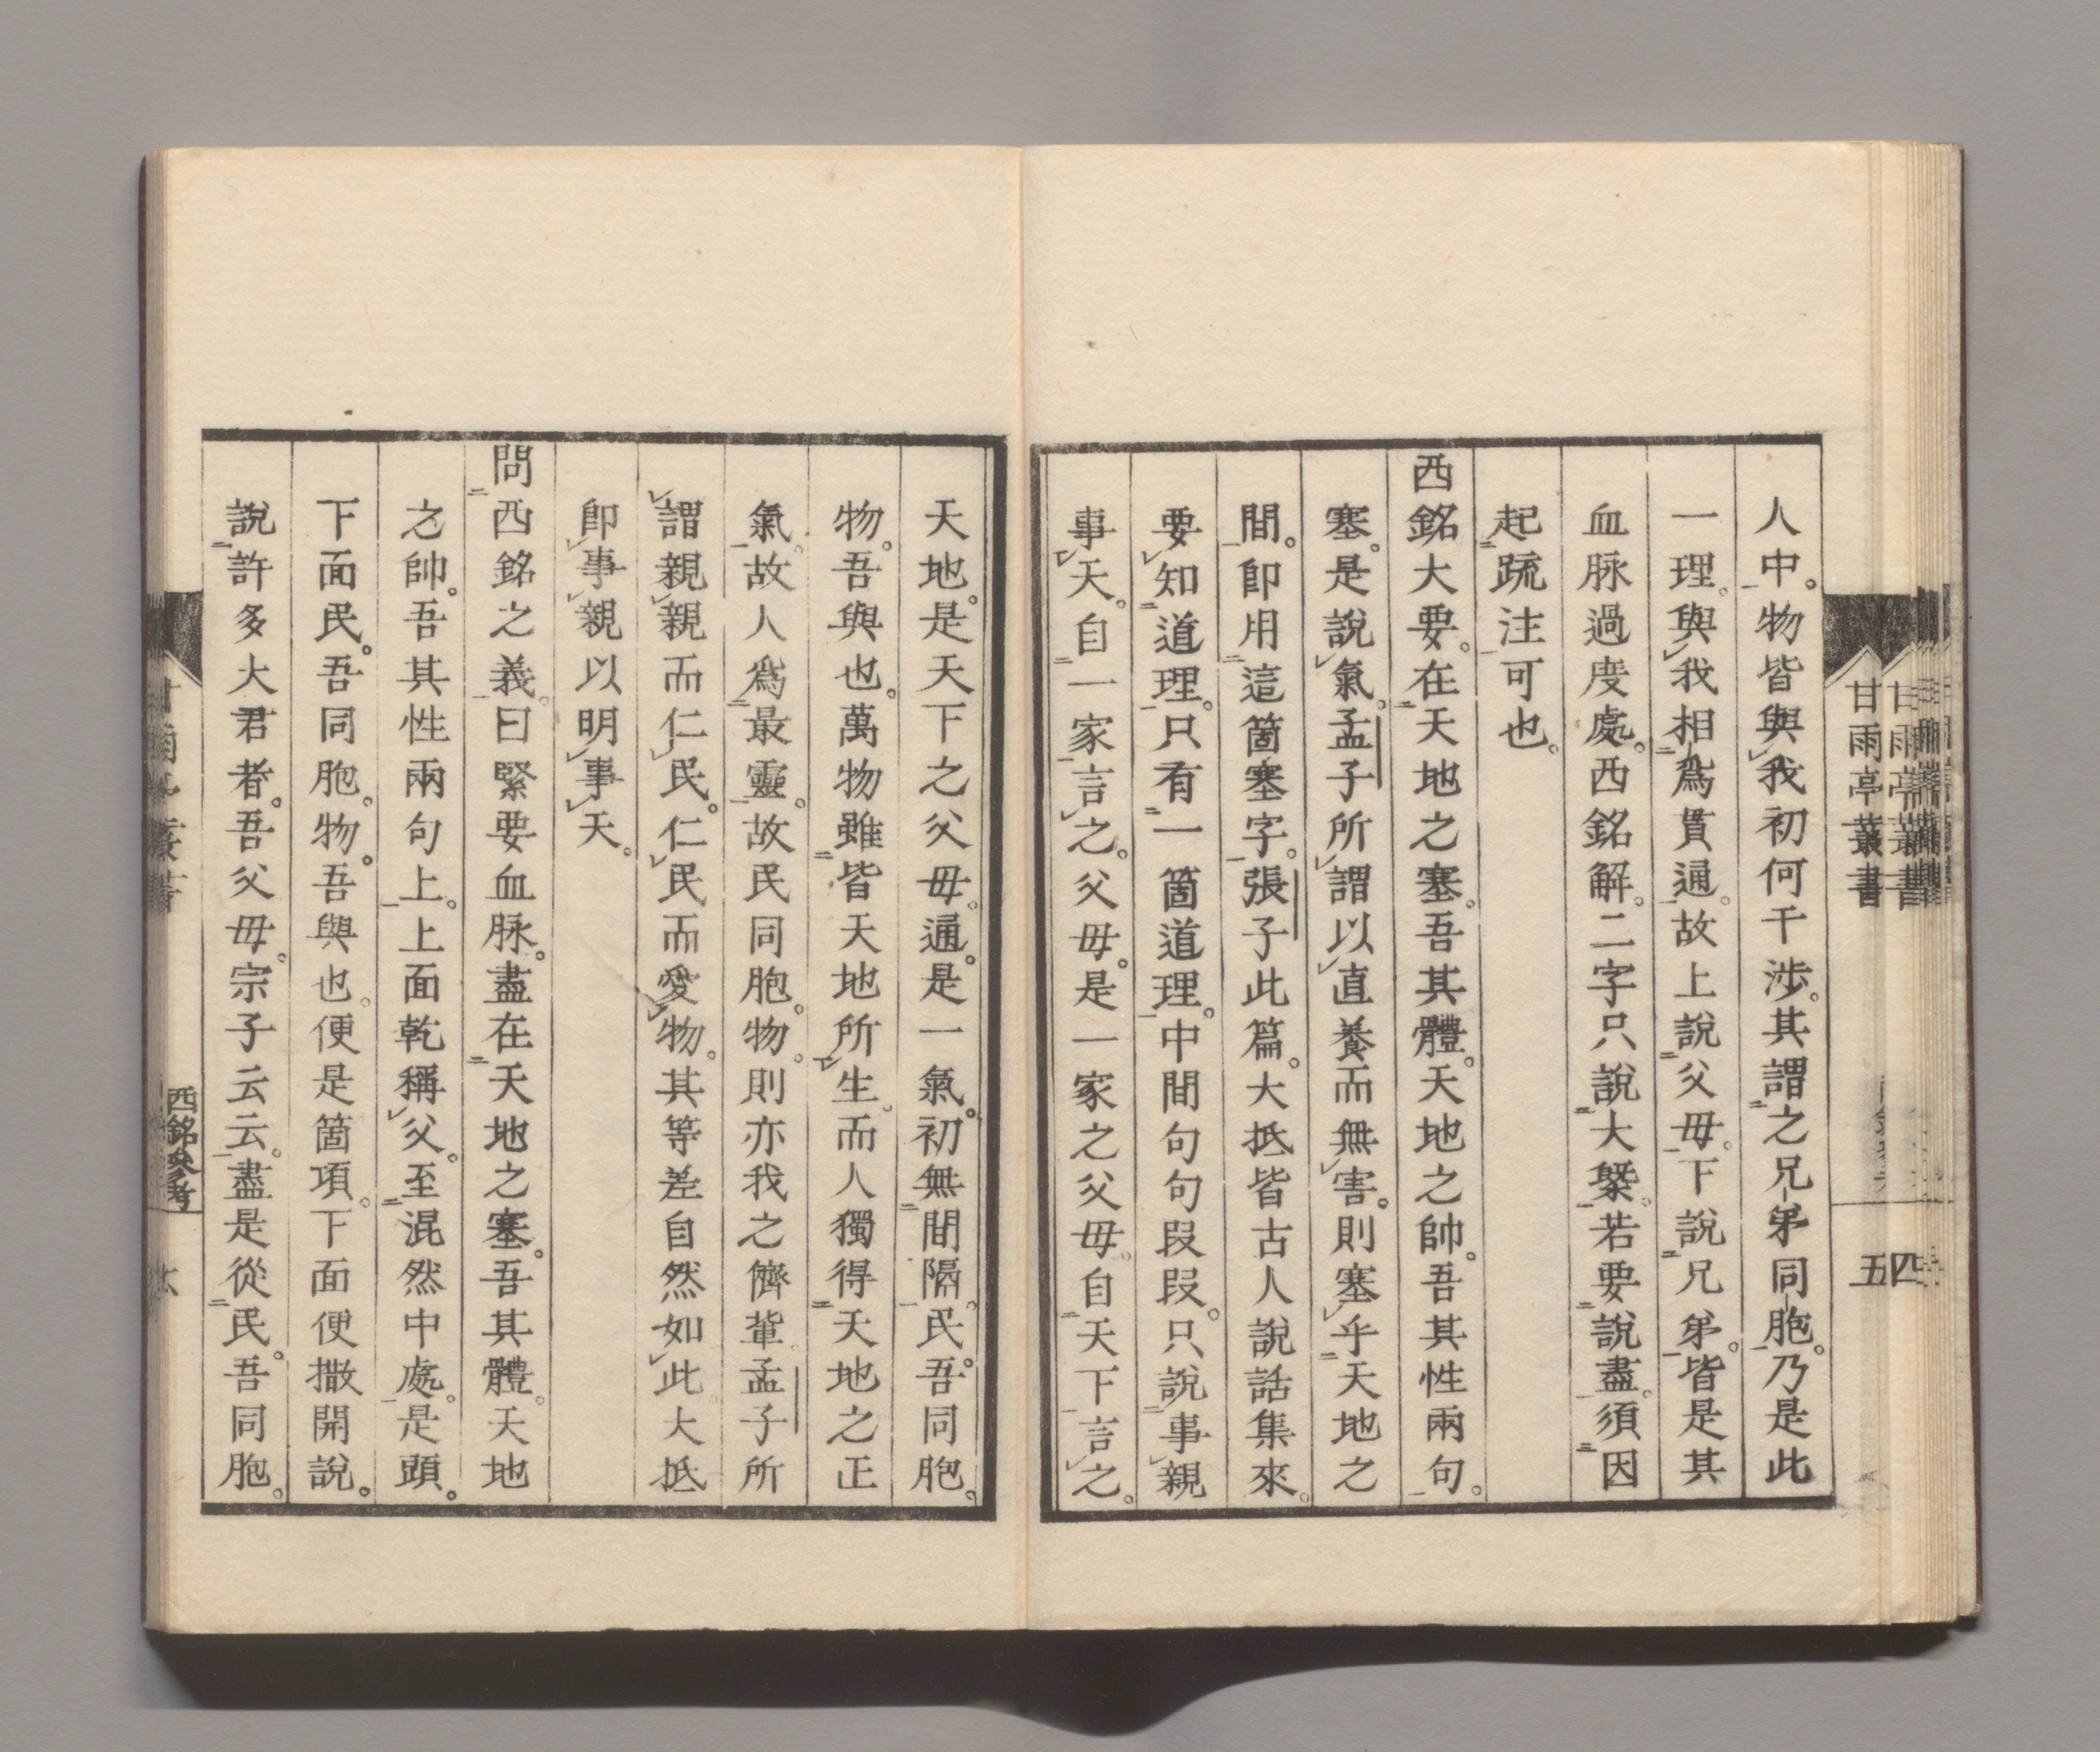 人中。物皆與我初何干涉。其謂之兄弟同胞。乃是此
一理。與我相爲貫通。故上說父母。下說兄弟。皆是其
血脉過度處。西銘解。二字只說大槩。若要說盡。須因
起疏注可也。
西銘大要。在天地之塞。吾其體。天地之帥。吾其性兩句。
塞。是說氣。孟子所謂以直養而無害。則塞乎天地之
間。卽用這箇塞字。張子此篇。大抵皆古人說話集來。
要知道理。只有一箇道理。中間句句段段。只說事親
事天。自一家言之。父母。是一家之父母。自天下言之。
天地。是天下之父母。通。是一氣。初無間隔。民。吾同胞。
物。吾與也。萬物雖皆天地所生。而人獨得天地之正
氣。故人爲最靈。故民同胞。物。則亦我之儕輩。孟子所
謂親親而仁民。仁民而愛物。其等差自然如此。大抵
卽事親以明事天。
問西銘之義。曰緊要血脉。盡在天地之塞。吾其體。天地
之帥。吾其性兩句上。上面乾稱父。至混然中處。是頭。
下面民。吾同胞。物。吾與也。便是箇項。下面便撒開說。
說許多大君者。吾父母。宗子云云。盡是從民。吾同胞。
甘雨亭叢書
五
甘雨亭叢書
四
西銘參考